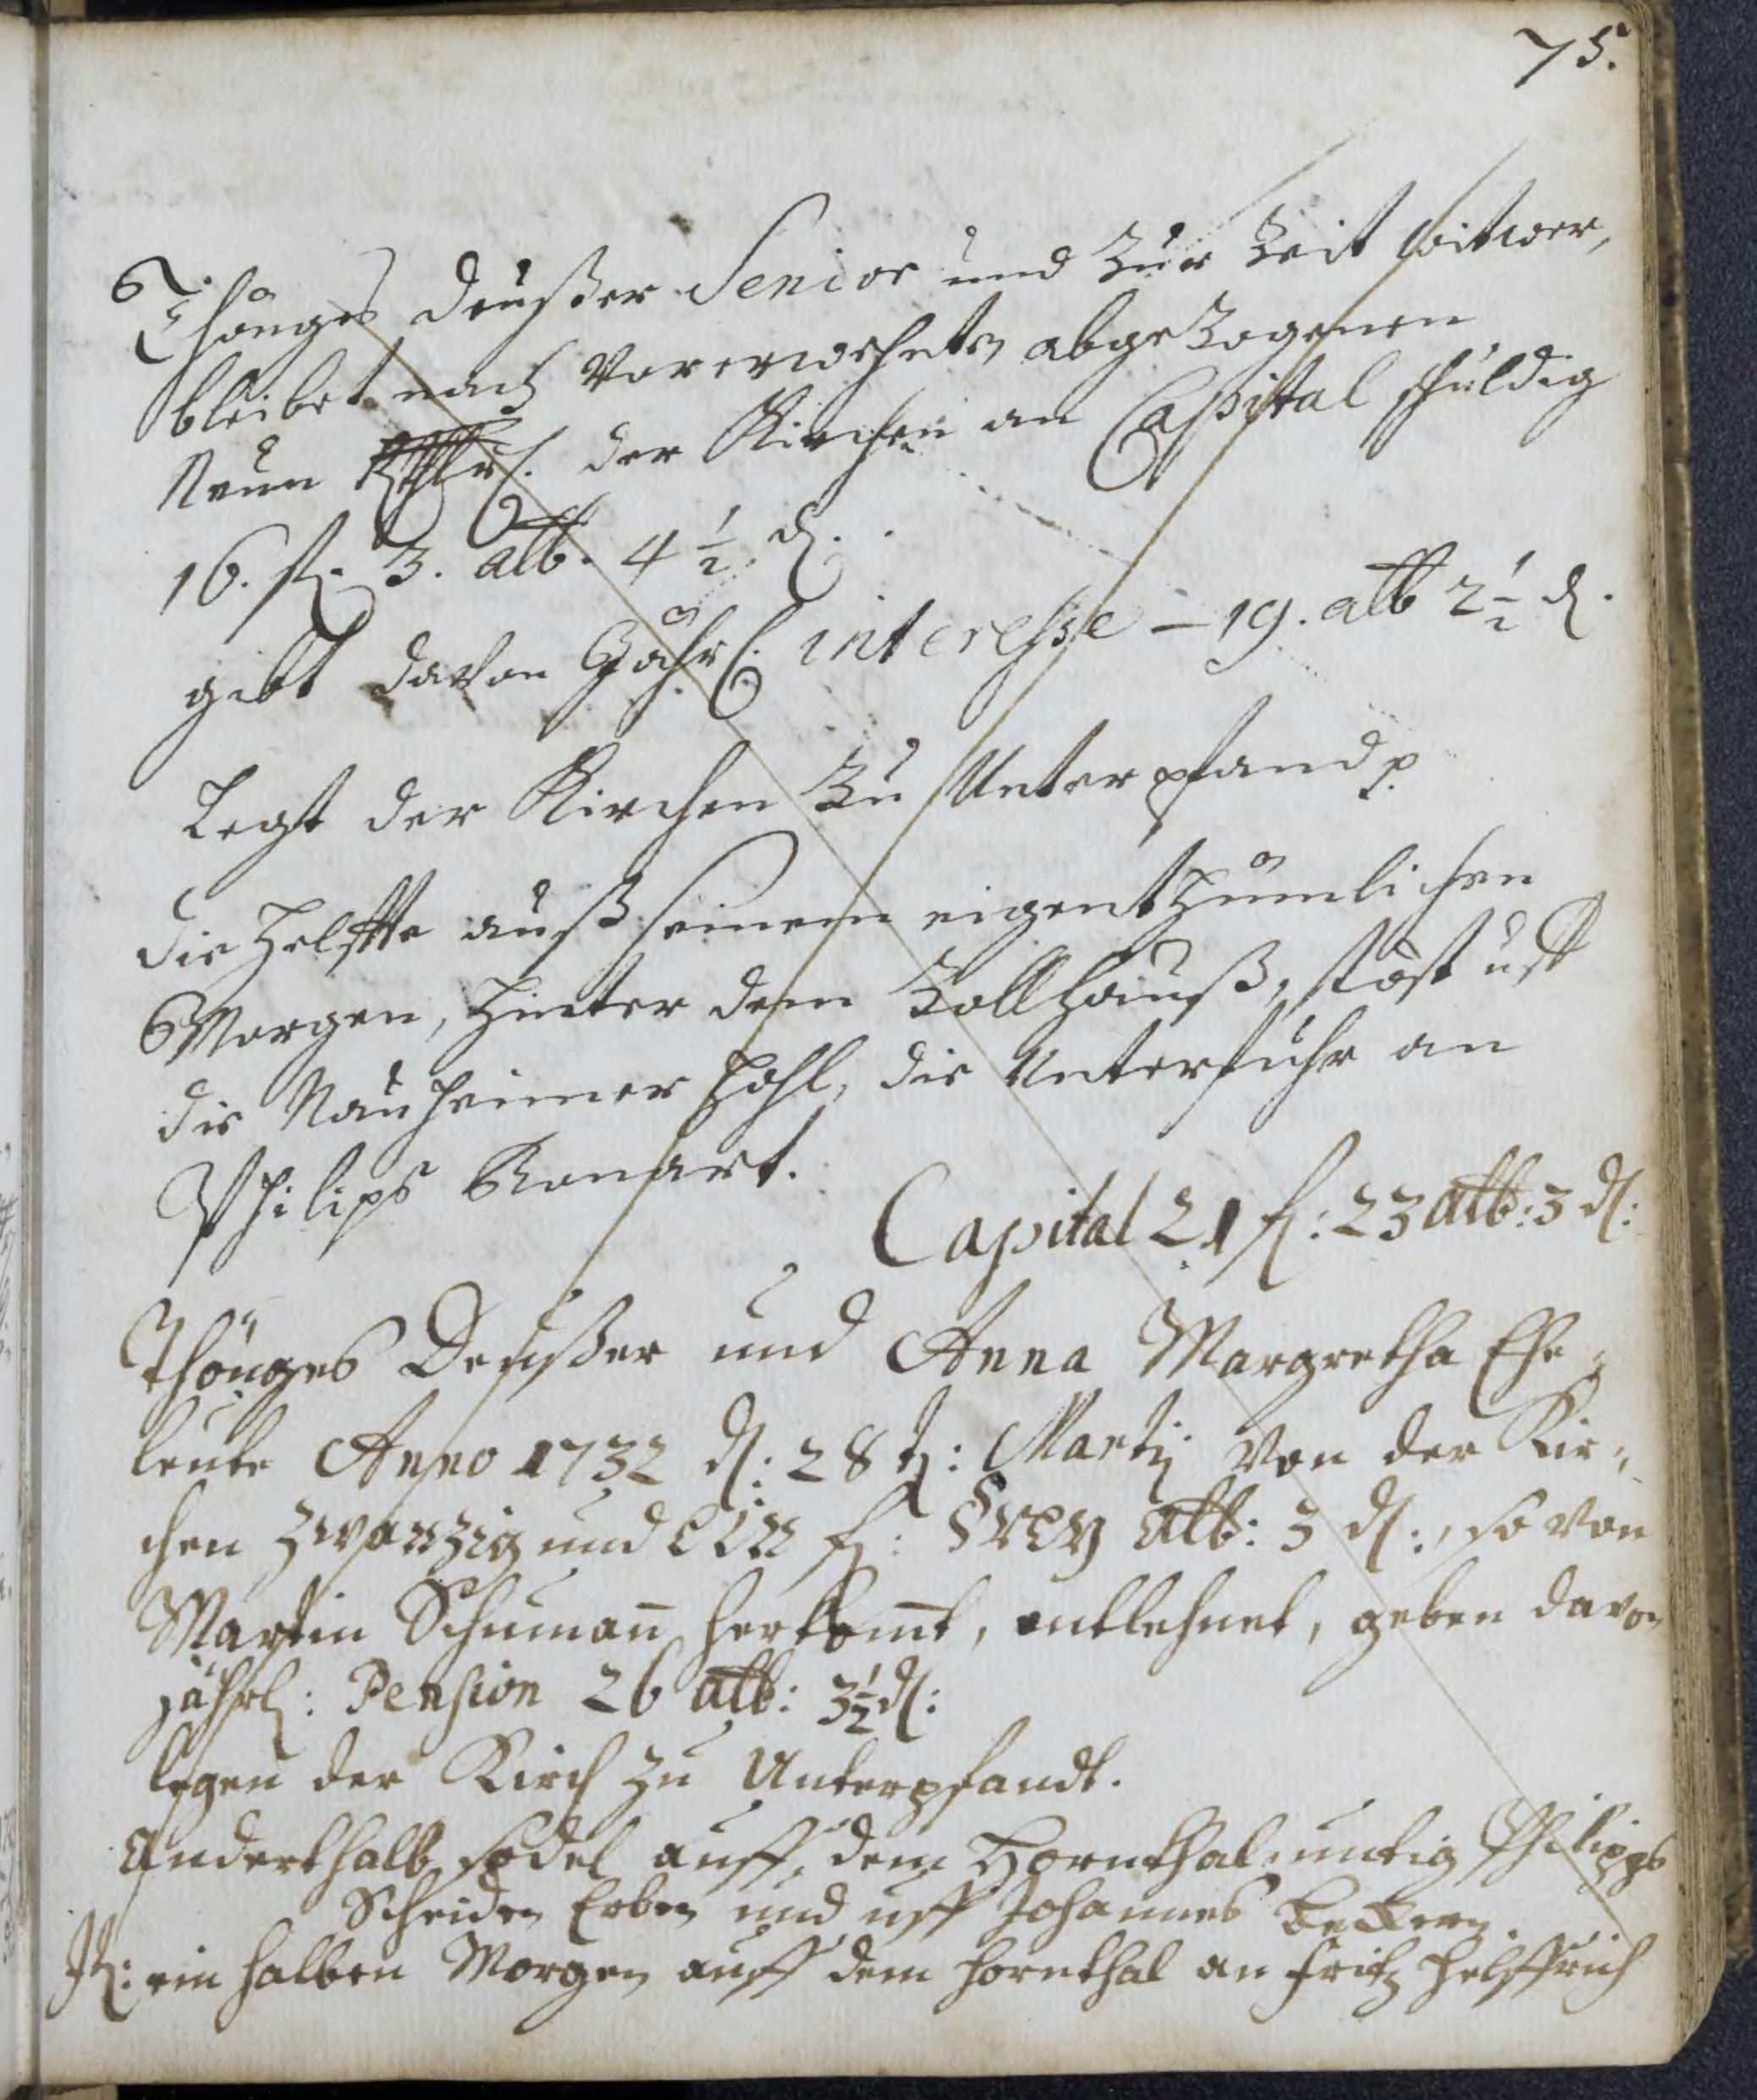 75.
Thönges Deußer Senior und Zur Zeit witwer,
bleibet nach Vorerwehntn abgeZogenen
Neun Rthlr. der Kirchen an Capital schuldig
16. fl. 3. alb. 4 1/2 d.
gibt davon Jährl. interesse – 19. alb 2 1/2 d.
Legt der Kirchen Zu Unterpfand p.
die Helffte auß seinem eigenthümlichen
Morgen, hinter dem Zollhauß, stöst uff
die Nauheimer Hohl, die Unterfuhr an
Philips
Capital 21 fl: 23 alb: 3 d:
Thönges Deußer und Anna Margretha Ehe-
leute Anno 1732 d: 28 t: Martij von der Kir-
chen Zwanzig und Ein fl: drey alb: 3 d:, so von
Martin Schuman̄ herkom̄t, entlehnet, geben davon
jährl: Pension 26 alb: 3 1/2 d:
legen der Kirch zu Unterpfandt.
Anderthalb sodel auff dem Hornthal, untig Philipps
Scheiden Erben und uff Johannes Beckern.
It: ein halben Morgen auff dem Hornthal an Fritz Helffrich